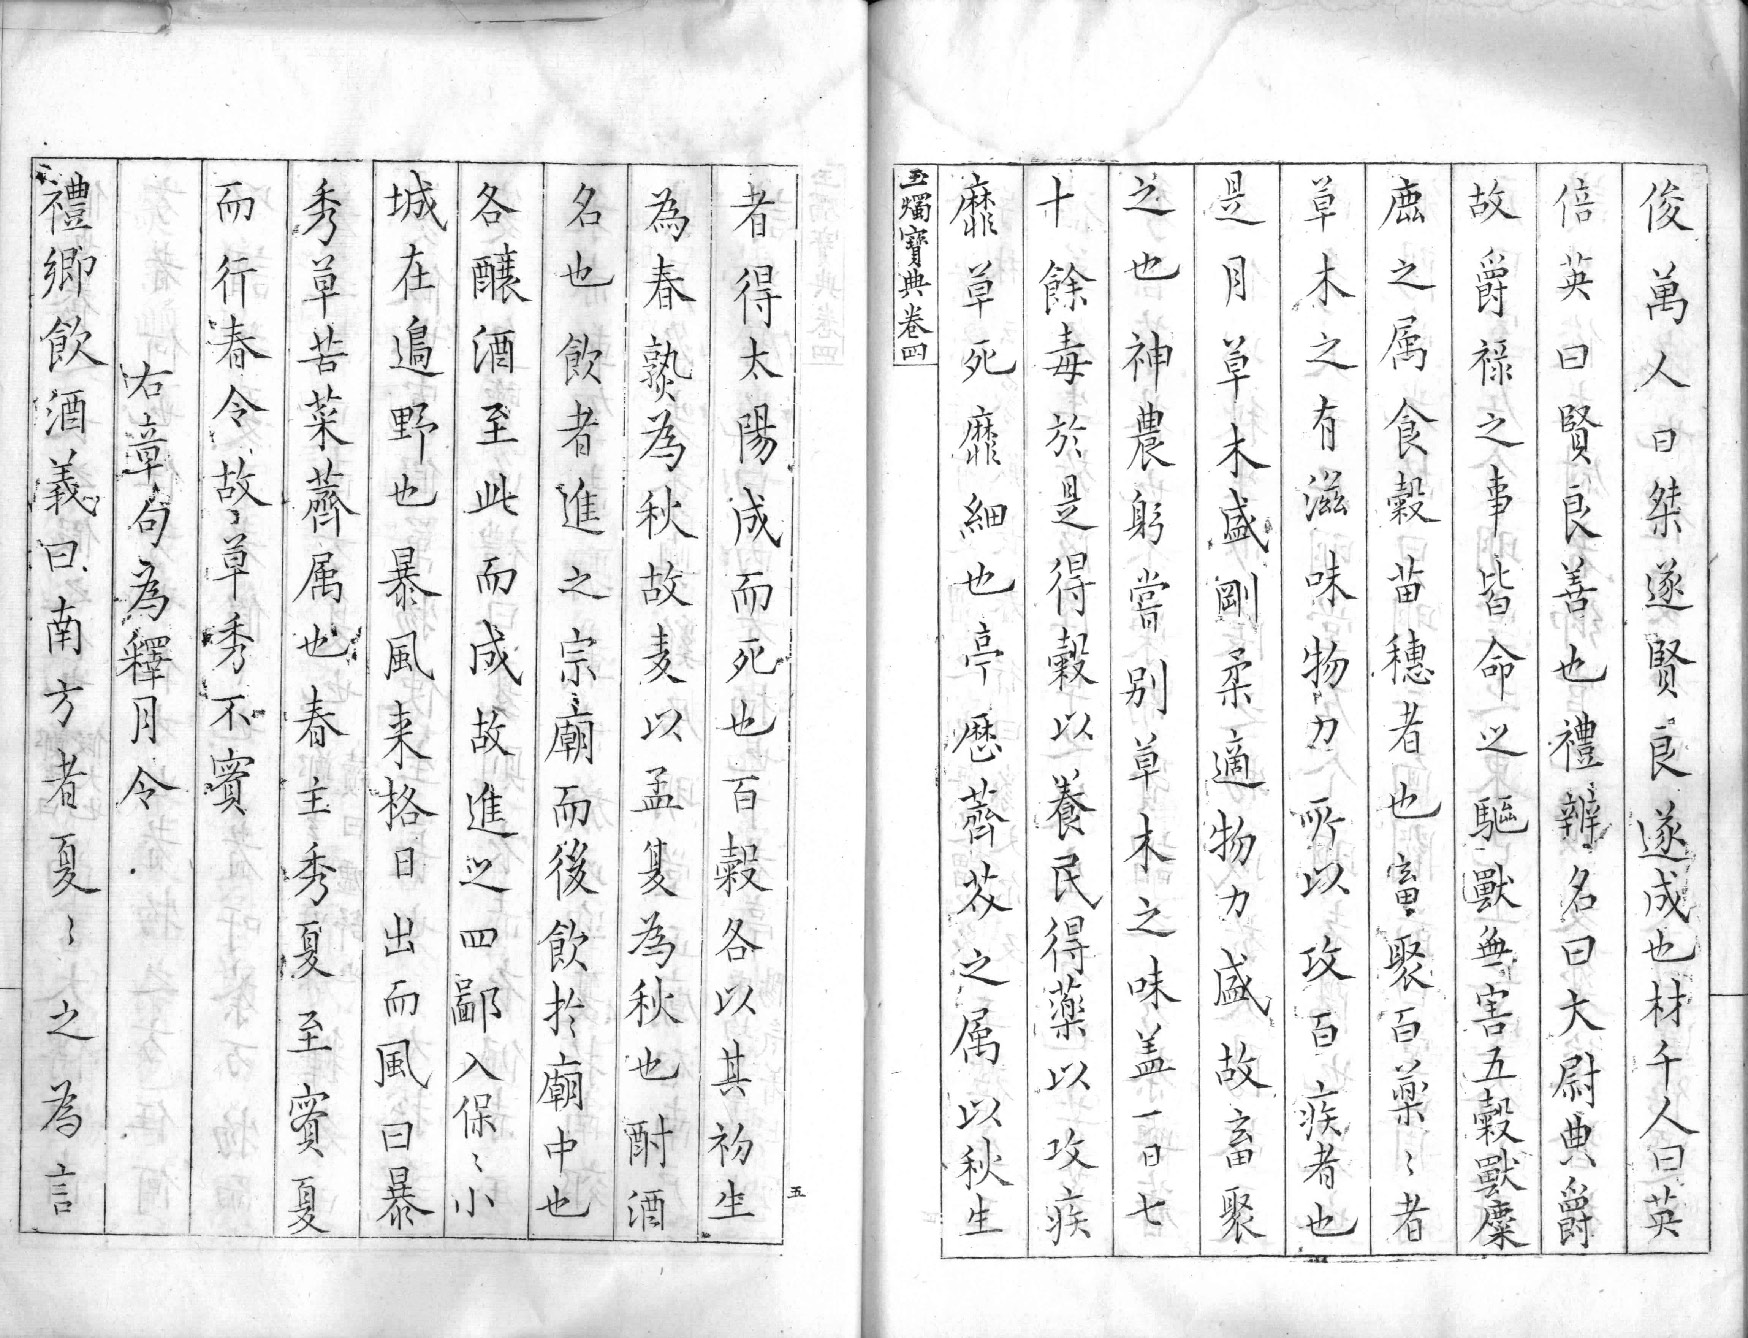 俊萬人曰桀遂賢良遂成也材千人曰英
倍英曰賢良善也禮辨名曰大尉典爵
故爵祿之事皆命之東驅獸無害五穀獸麋
鹿之属食穀苗穗者也畜聚百藥〻者
草木之有滋味物力所以攻百疾者也
是月草木盛剛柔適物力盛故畜聚
之也神農躬嘗別草木之味盖一日七
十餘毒於是得穀以養民得藥以攻疾
靡草死靡細也亭歷薺苃之属以秋生
玉燭寶典卷四
者得太陽成而死也百穀各以其初生
為春孰為秋故麦以孟夏為秋也酎酒
名也飲者進之宗廟而後飲扵廟中也
各釀酒至此而成故進之四鄙入保〻小
城在邊野也暴風来格日出而風曰暴
秀草苦菜薺属也春主秀夏至實夏
而行春令故草秀不實
右章句為釋月令
禮鄉飲酒義曰南方者夏〻之為言
五